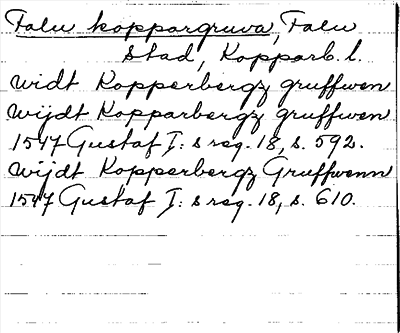 Falu koppargruva, Falu
stad, Kopparb. l.
widt Kopperbergz gruffwen
wijdt Kopparbergz gruffwen
1547 Gustaf I: s reg. 18, s. 592.
wijdt Kopperbergz Gruffwenn
1547 Gustaf I: s reg. 18, s. 610.